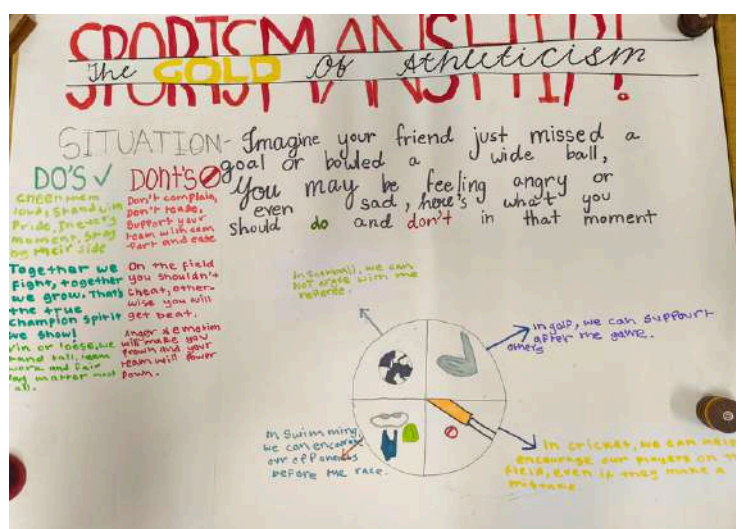 SPORTSMANSHIP!
The GOLD Of Athleticism
SITUATION- Imagine your friend just missed a
goal or bowled a wide ball,
You may be feeling angry or
even sad, here's what you
should do and don't in that moment
DO'S ✓
cheer them
loud, stand with
Pride, In every
moment, stay
by their side
Together we
fight, together
we grow. That's
the true
champion spirit
we show!
win or loose, we
stand tall, team
work and fair
play matter most
all.
Dont's
Don't complain,
Don't tease,
Support your
team with
and ease
On the field
you shouldn't
cheat, other-
wise you will
get beat.
Anger & emotion
will make you
frown and your
team will power
down.
In football, we can
not argue with the
referee.
In golf, we can suppourt
others after the game.
In swimming,
we can encourage
our opponents
before the race.
In cricket, we can
encourage our players on the
field, even if they make a
mistake.